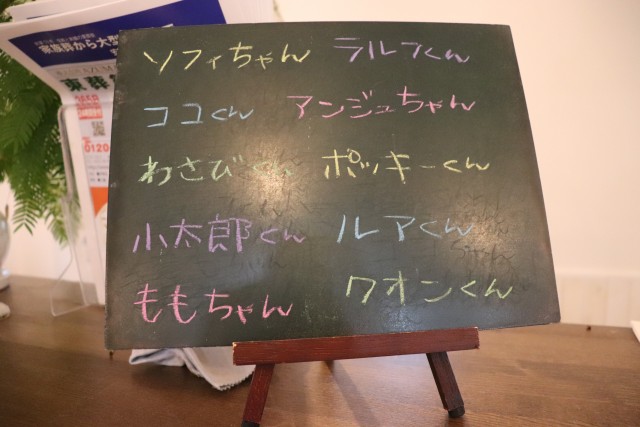 ソフィちゃん ラルフくん
ココくん アンジュちゃん
わさびくん ポッキーくん
小太郎くん ルアくん
ももちゃん クオンくん
家族葬から大型
0120